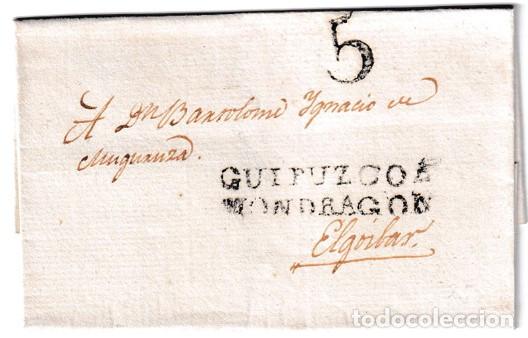 5
A Dn Bartolome Ygnacio de
Muguruza.
GUIPUZCOA
MONDRAGON
Elgoibar.
todocoleccion